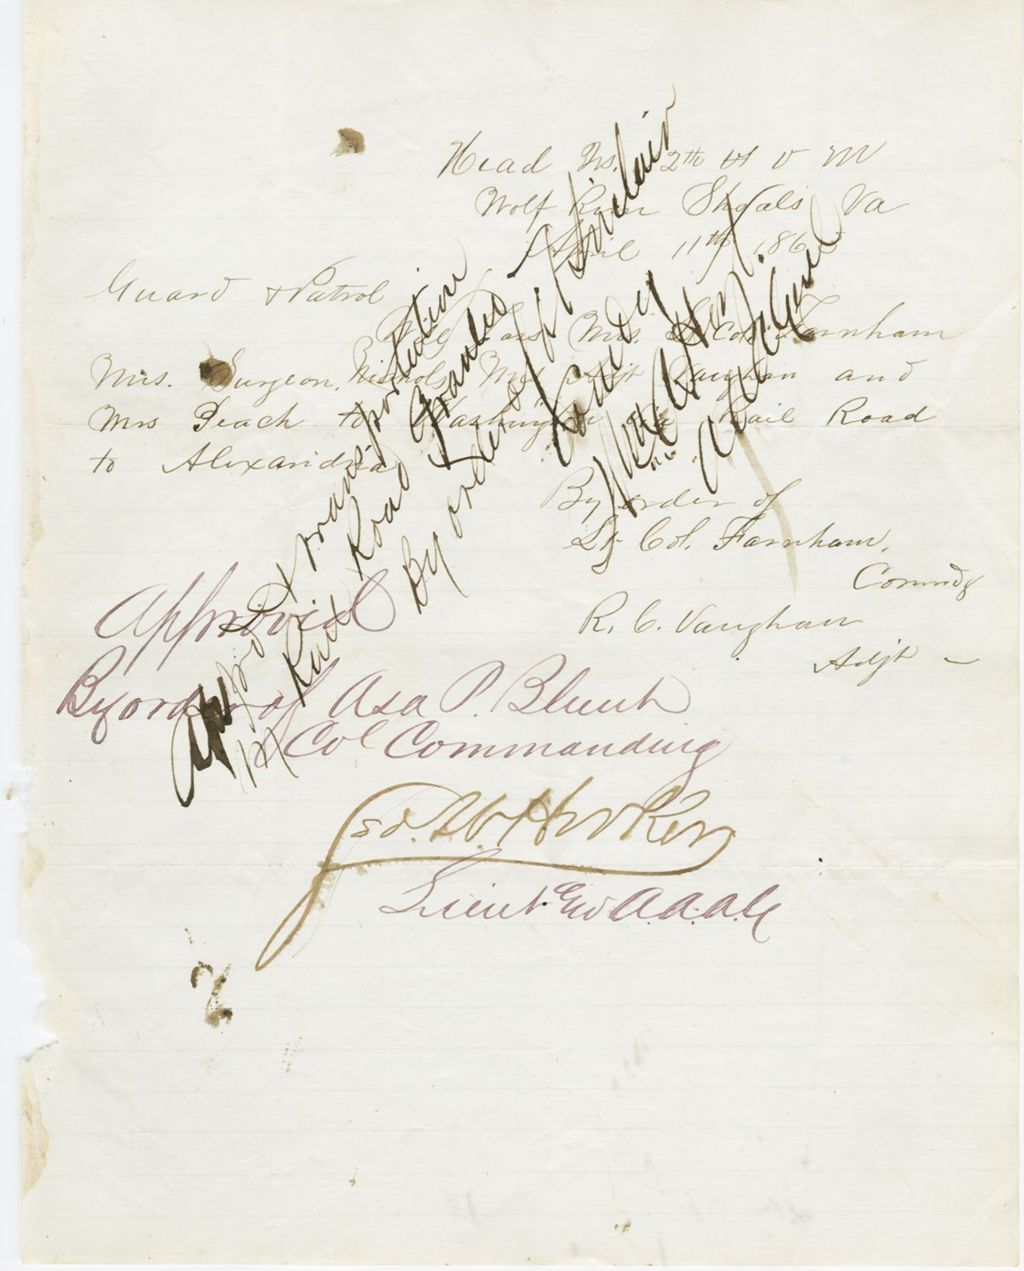 Head Qrs. 12th Vt V M
Wolf Run Shoals Va
April 11th 186
Guard & Patrol
Pass Mrs. Lt Col. Farnham
Mrs. Surgeon Nichols, Mrs. Adjt Vaughan and
Mrs Peach to Washington via Rail Road
to Alexandria
By order of
Lt Col. Farnham,
Commdg
R. C. Vaughan
Adjt
Approved
By order of Asa P. Blunt
Col Commanding
Geo. W. Hooker
Lieut & A.A.A.G
Approved & transportation
on Rail Road granted
By order of
Comdg